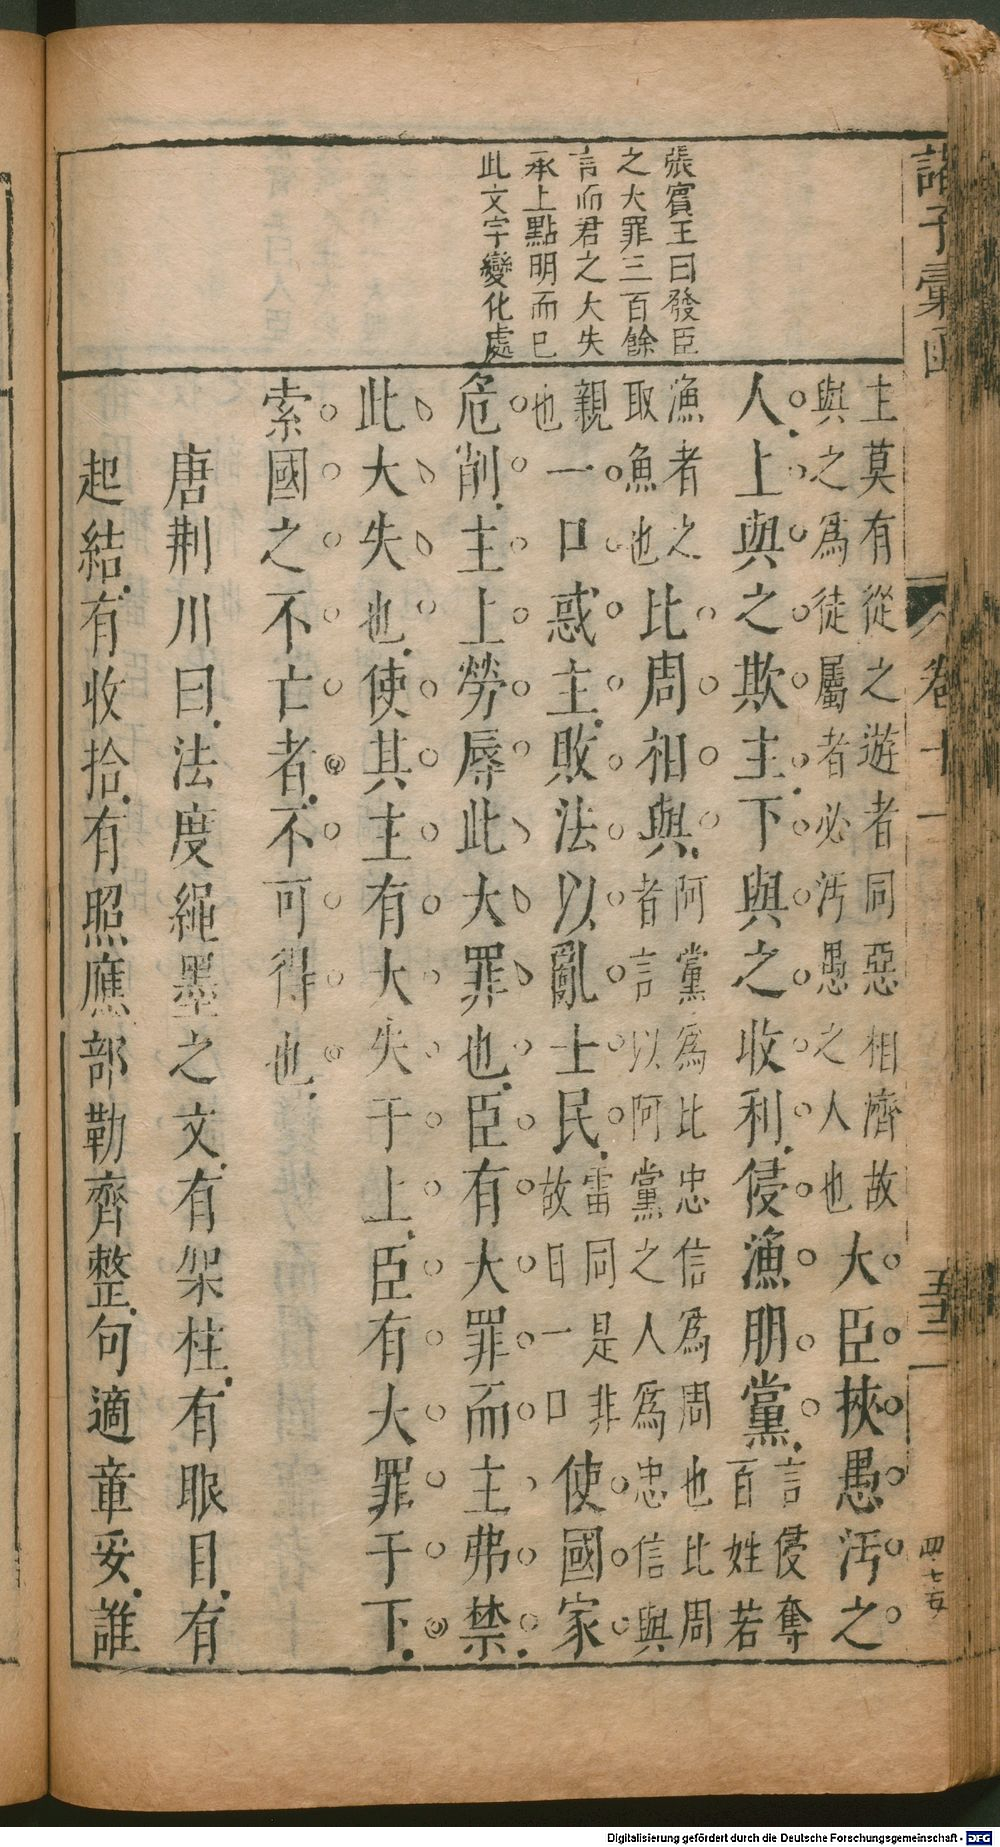 諸子彙函
卷十一
四七五
張賓王曰發臣
之大罪三百餘
言而君之大失
承上點明而已
此文字變化處
主莫有從之遊者同惡相濟故
與之爲徒屬者必汚愚之人也
大臣挾愚汚之
人上與之欺主下與之收利侵漁朋黨
言侵奪
百姓若
漁者之
取魚也
比周相與
阿黨爲比忠信爲周也比周
者言以阿黨之人爲忠信與
親
也
一口惑主敗法以亂士民
雷同是非
故曰一口
使國家
危削主上勞辱此大罪也臣有大罪而主弗禁
此大失也使其主有大失于上臣有大罪于下
索國之不亡者不可得也
唐荆川曰法度繩墨之文有架柱有眼目有
起結有收拾有照應部勒齊整句適章妥誰
Digitalisierung gefördert durch die Deutsche Forschungsgemeinschaft - DFG